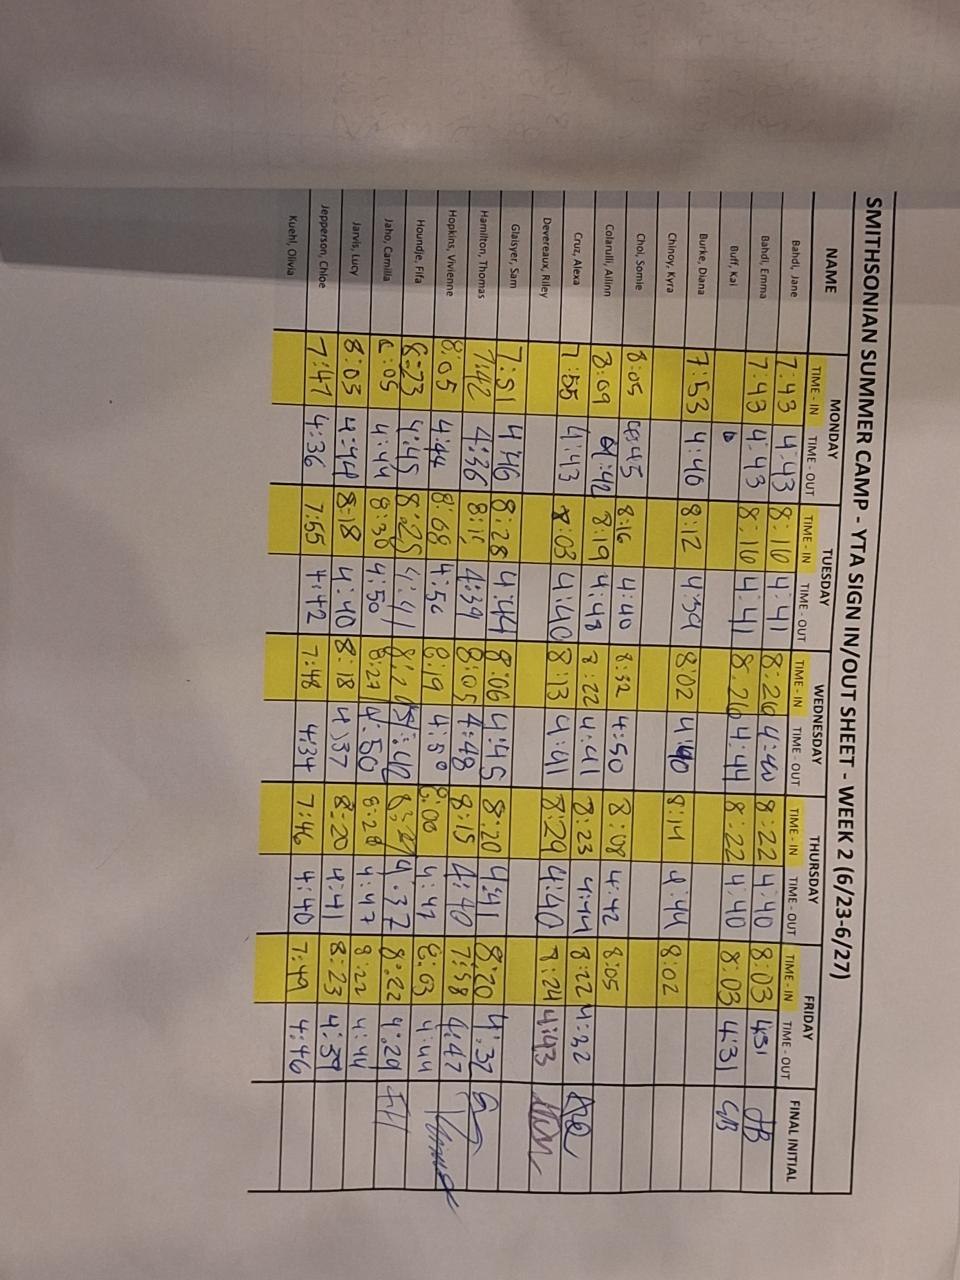 SMITHSONIAN SUMMER CAMP - YTA SIGN IN/OUT SHEET - WEEK 2 (6/23-6/27)
NAME MONDAY TUESDAY WEDNESDAY THURSDAY FRIDAY FINAL INITIAL
TIME - IN TIME - OUT TIME - IN TIME - OUT TIME - IN TIME - OUT TIME - IN TIME - OUT TIME - IN TIME - OUT
Bahdi, Jane 7:43 4:43 8:16 4:41 8:26 4:40 8:22 4:40 8:03 4:31 JB
Bahdi, Emma 7:43 4:43 8:16 4:41 8:26 4:44 8:22 4:40 8:03 4:31 EB
Buff, Kai
Burke, Diana 7:53 4:40 8:12 4:39 8:02 4:40 8:14 4:44 8:02
Chinoy, Kyra
Choi, Somie 8:05 4:45 8:16 4:40 8:32 4:50 8:08 4:42 8:05
Colarulli, Ailinn 8:09 4:42 8:19 4:48 8:22 4:41 8:23 4:44 8:22 4:32
Cruz, Alexa 7:55 4:43 8:03 4:40 8:13 4:41 8:29 4:40 8:24 4:43
Devereaux, Riley
Glaisyer, Sam 7:51 4:46 8:28 4:44 8:06 4:45 8:20 4:41 8:20 4:32
Hamilton, Thomas 7:42 4:36 4:39 8:05 4:48 8:15 4:40 7:58 4:47
Hopkins, Vivienne 8:05 4:44 8:08 4:50 8:19 4:50 8:00 4:42 8:03 4:44
Houndje, Fifa 8:23 4:45 8:25 4:41 4:37 8:22 4:29 FH
Jaho, Camilla 8:05 4:44 8:30 4:50 8:27 4:50 8:28 4:47 8:22 4:44
Jarvis, Lucy 8:03 4:44 8:18 4:40 8:18 4:37 8:20 4:41 8:23 4:39
Jepperson, Chloe 7:47 4:36 7:55 4:42 7:48 4:34 7:46 4:40 7:49 4:46
Kuehl, Olivia